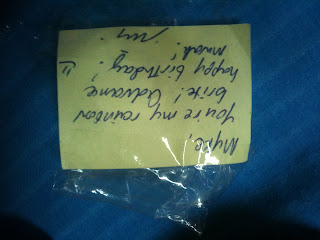 Myke,
You're my rainbow
brite! Advance
happy birthday! =)
mwah!